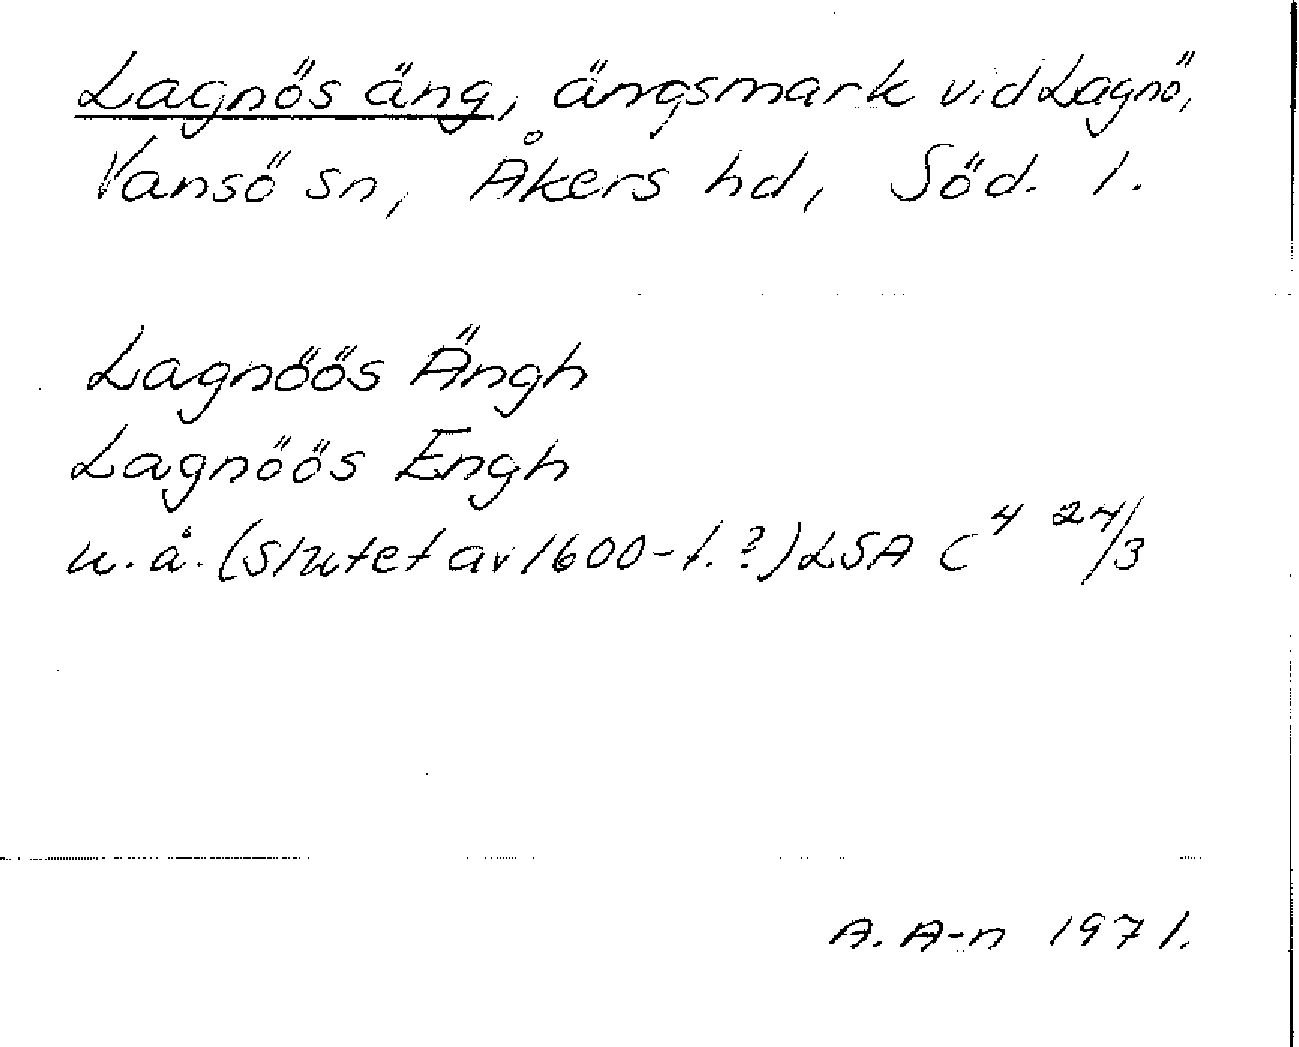 Lagnös äng, ängsmark vid Lagnö,
Vansö sn, Åkers hd, Söd. l.
Lagnöös Ängh
Lagnöös Engh
u. å. (Slutet av 1600-t. ?) LSA C⁴ 24/3
A. A-n 1971.